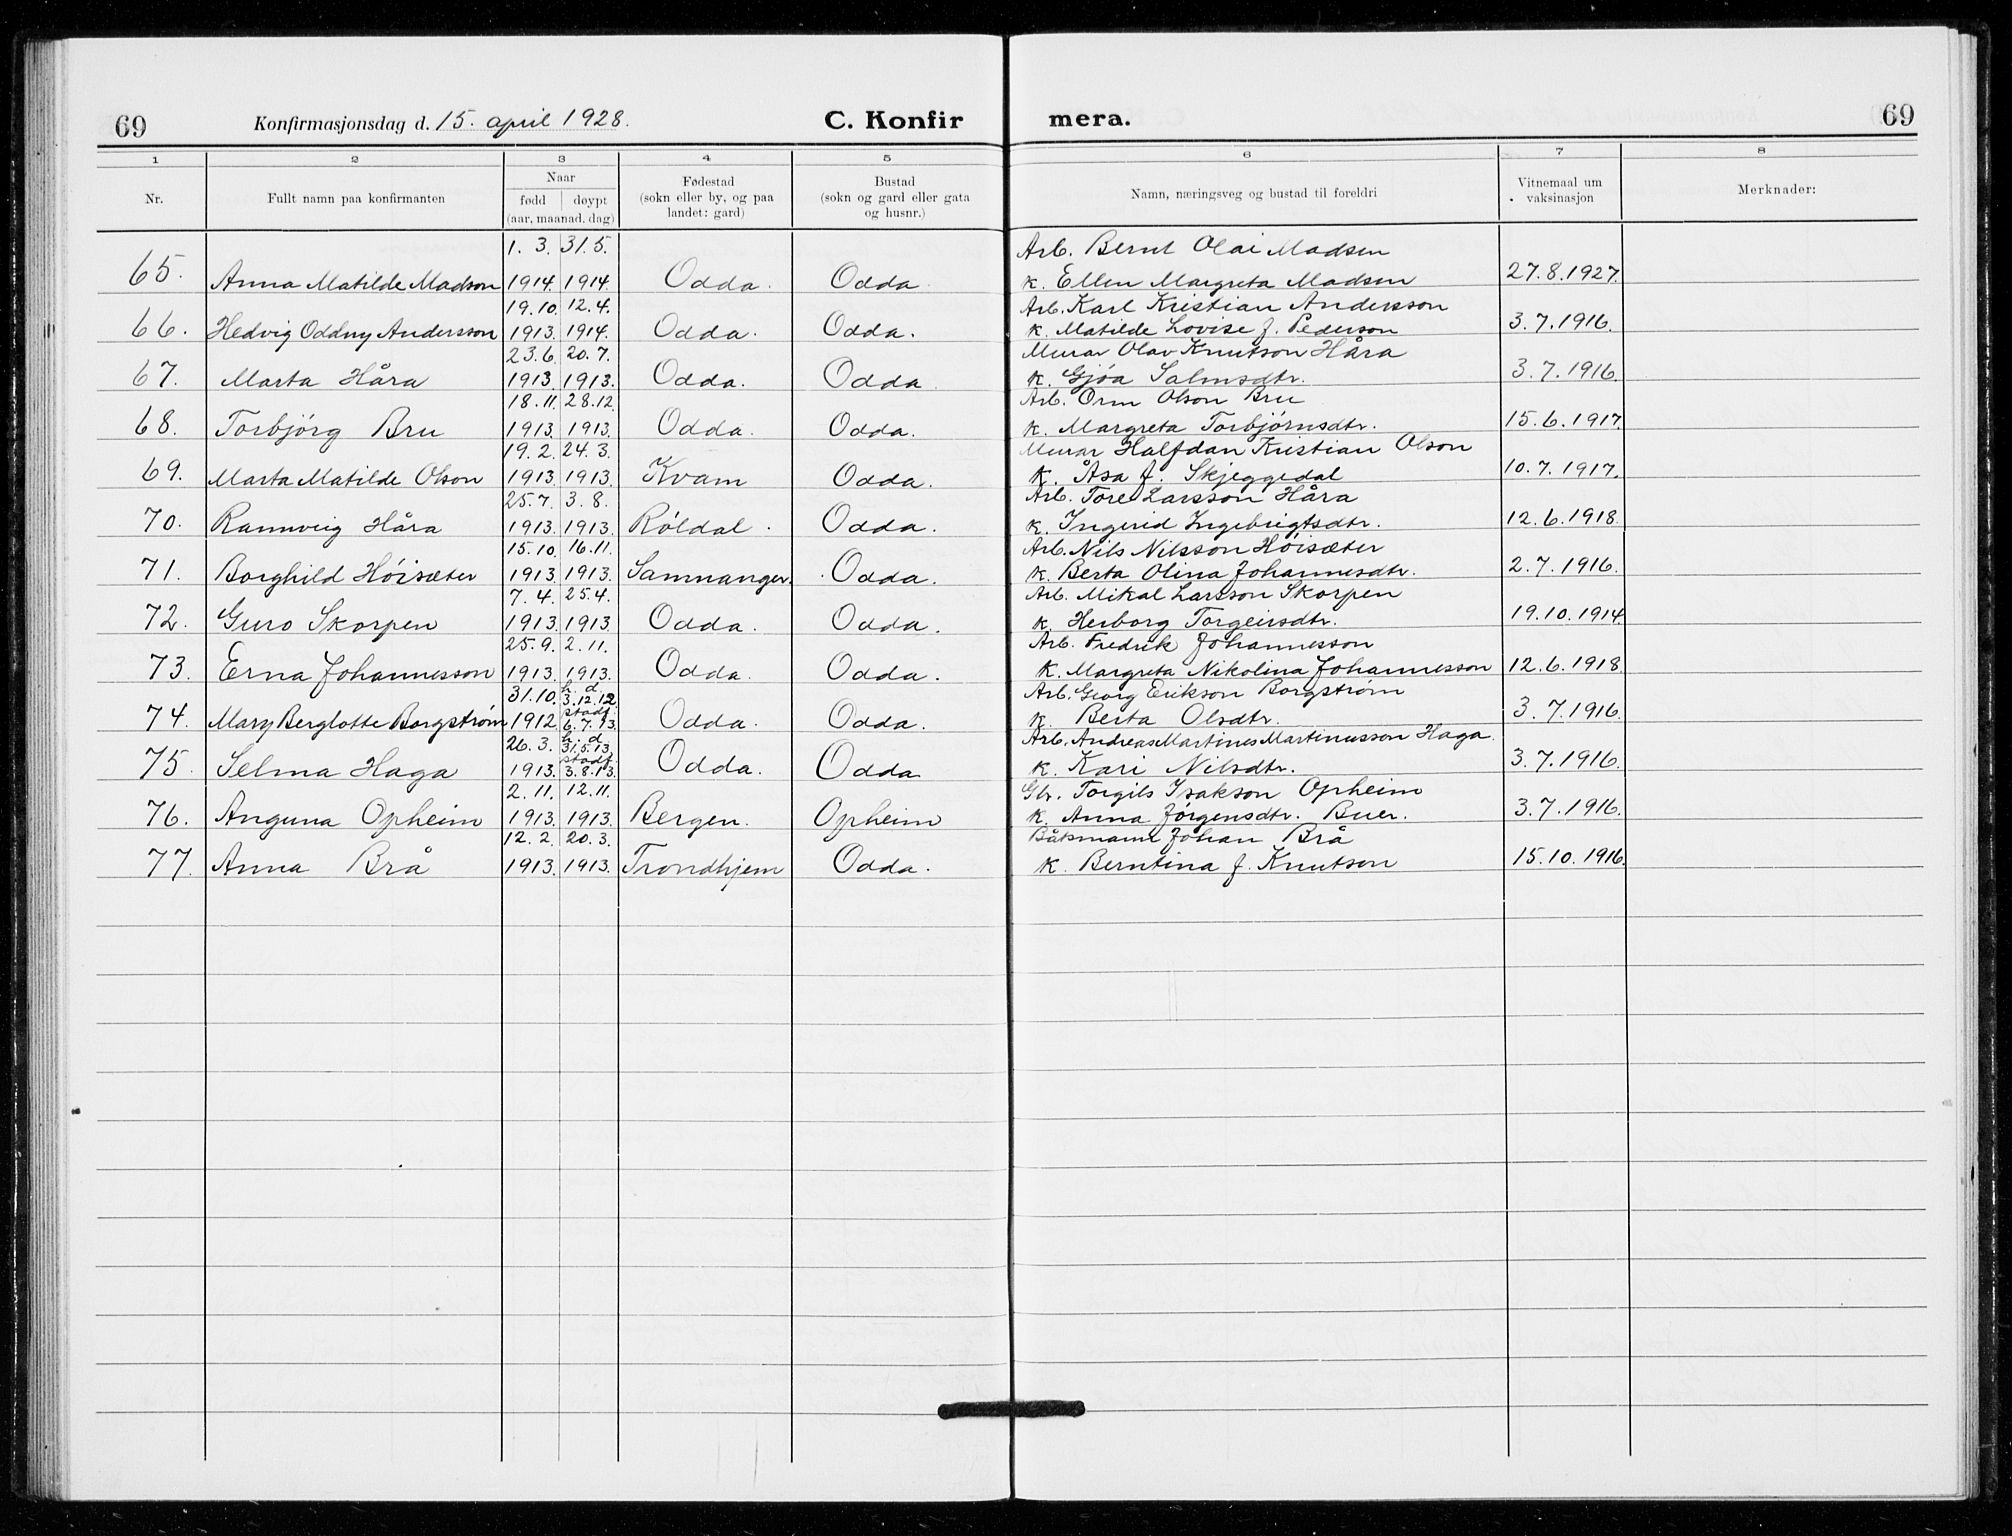 69 Konfirmasjonsdag d. 15. april 1928. C. Konfir mera. 69
1 2 3 4 5 6 7 8
Nr. Fullt namn paa konfirmanten Naar fødd døypt (aar, maanad, dag) Fødestad (sokn eller by, og paa landet: gard) Bustad (sokn og gard eller gata og husnr.) Namn, næringsveg og bustad til foreldri Vitnemaal um vaksinasjon Merknader:
1. 3. 31.5. Arb. Bernt Olai Madsen
65. Anna Matilde Madson 1914. 1914. Odda. Odda k. Ellen Margreta Madsen 27.8.1927.
19.10. 12.4. Arb. Karl Kristian Andersson
66. Hedvig Oddny Andersson 1913. 1914. Odda. Odda. k. Matilde Lovise f. Pederson 3.7.1916.
23.6. 20.7. Murar Olav Knutson Håra
67. Marta Håra 1913. 1913. Odda. Odda k. Gjøa Salmsdtr. 3.7.1916.
18.11. 28.12. Arb. Orm Olson Bru
68. Torbjørg Bru 1913. 1913. Odda. Odda. k. Margreta Torbjørnsdtr. 15.6.1917.
19.2. 24.3. Murar Halfdan Kristian Olson
69. Marta Matilde Olson 1913. 1913. Kvam Odda. k. Åsa f. Skjeggedal 10.7.1917.
25.7. 3.8. Arb. Tore Larsson Håra
70. Rannveig Håra 1913. 1913. Røldal. Odda. k. Ingerid Ingebrigtsdtr. 12.6.1918.
15.10. 16.11. Arb. Nils Nilsson Høisæter
71. Borghild Høisæter 1913. 1913. Samnanger. Odda. k. Berta Olina Johannesdtr. 2.7.1916.
7.4. 25.4. Arb. Mikal Larsson Skorpen
72. Guro Skorpen 1913. 1913. Odda. Odda. k. Herborg Torgeirsdtr. 19.10.1914
25.9. 2.11. Arb. Fredrik Johannesson
73. Erna Johannesson 1913. 1913. Odda. Odda. k. Margreta Nikolina Johannesson 12.6.1918.
31.10. h. d. 3.12.12 Arb. Georg Erikson Borgstrøm
74. Mary Berglotte Borgstrøm 1912. stadf. 6.7.13. Odda. Odda. k. Berta Olsdtr. 3.7.1916.
26.3. h. d. 31.5.13. Arb. Andreas Martines Martinusson Haga.
75. Selma Haga 1913. stadf. 3.8.13. Odda. Odda k. Kari Nilsdtr. 3.7.1916.
2.11. 12.11. Gbr. Torgils Isakson Opheim
76. Anguna Opheim 1913. 1913. Bergen. Opheim k. Anna Jørgensdtr. Buer. 3.7.1916.
12.2. 20.3. Båtsmann Johan Brå
77. Anna Brå 1913. 1913. Trondhjem Odda. k. Berntina f. Knutson 15.10.1916.